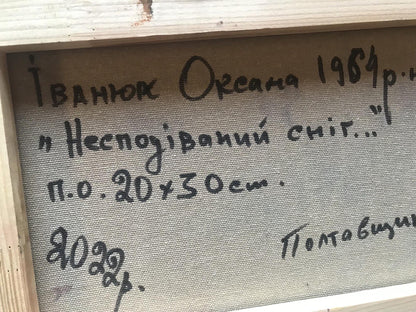 Іванюк Оксана 1964р.н
"Несподіваний сніг..."
п.о. 20х30см.
2022р.
Полтавщин